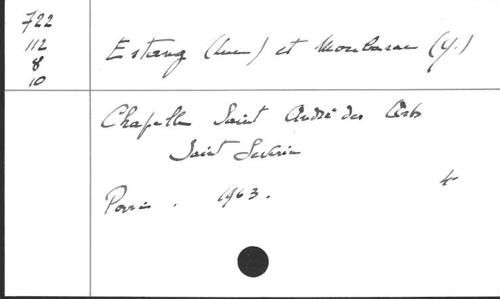 722
112
8
10
Estang (Luc) et Moubarac (Y.)
Chapelle Saint André des Arts
Saint Severin
Paris. 1963.